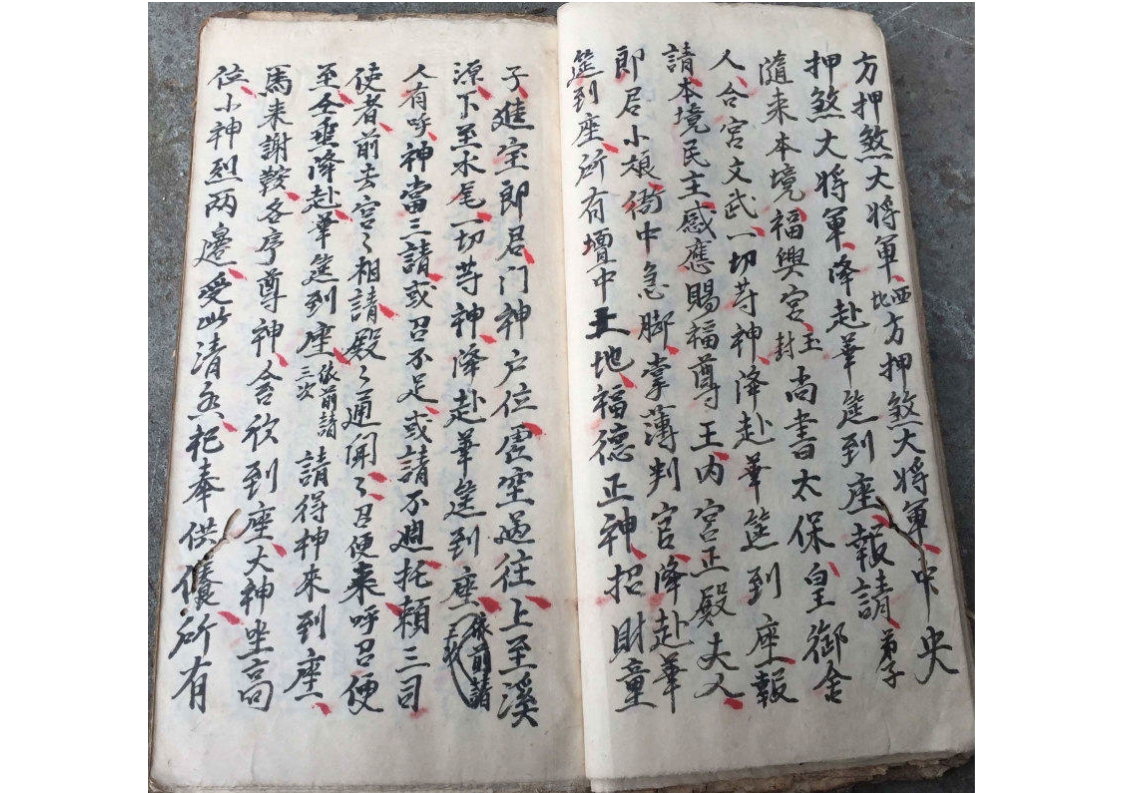 方押煞大將軍西北方押煞大將軍中央
押煞大將軍降赴華筵到座報請弟子
隨來本境福興宮玉封尚書太保皇御舍
人合宮文武一切等神降赴華筵到座報
請本境民主感應賜福尊王內宮正殿夫人
郎君小娘衙中急脚掌薄判官降赴華
筵到座所有壇中土地福德正神招財童
子進宝郎君门神户位虛空過往上至溪
源下至水尾一切等神降赴華筵到座依前請三次
人有呼神當三請或召不足或請不週托賴三司
使者前去宮々相請殿々通聞々召便来呼召便
至仝垂降赴華筵到座依前請三次請得神來到座
馬来謝鞍各序尊神合欣到座大神坐高
位小神列兩邊受此清香祀奉供養所有